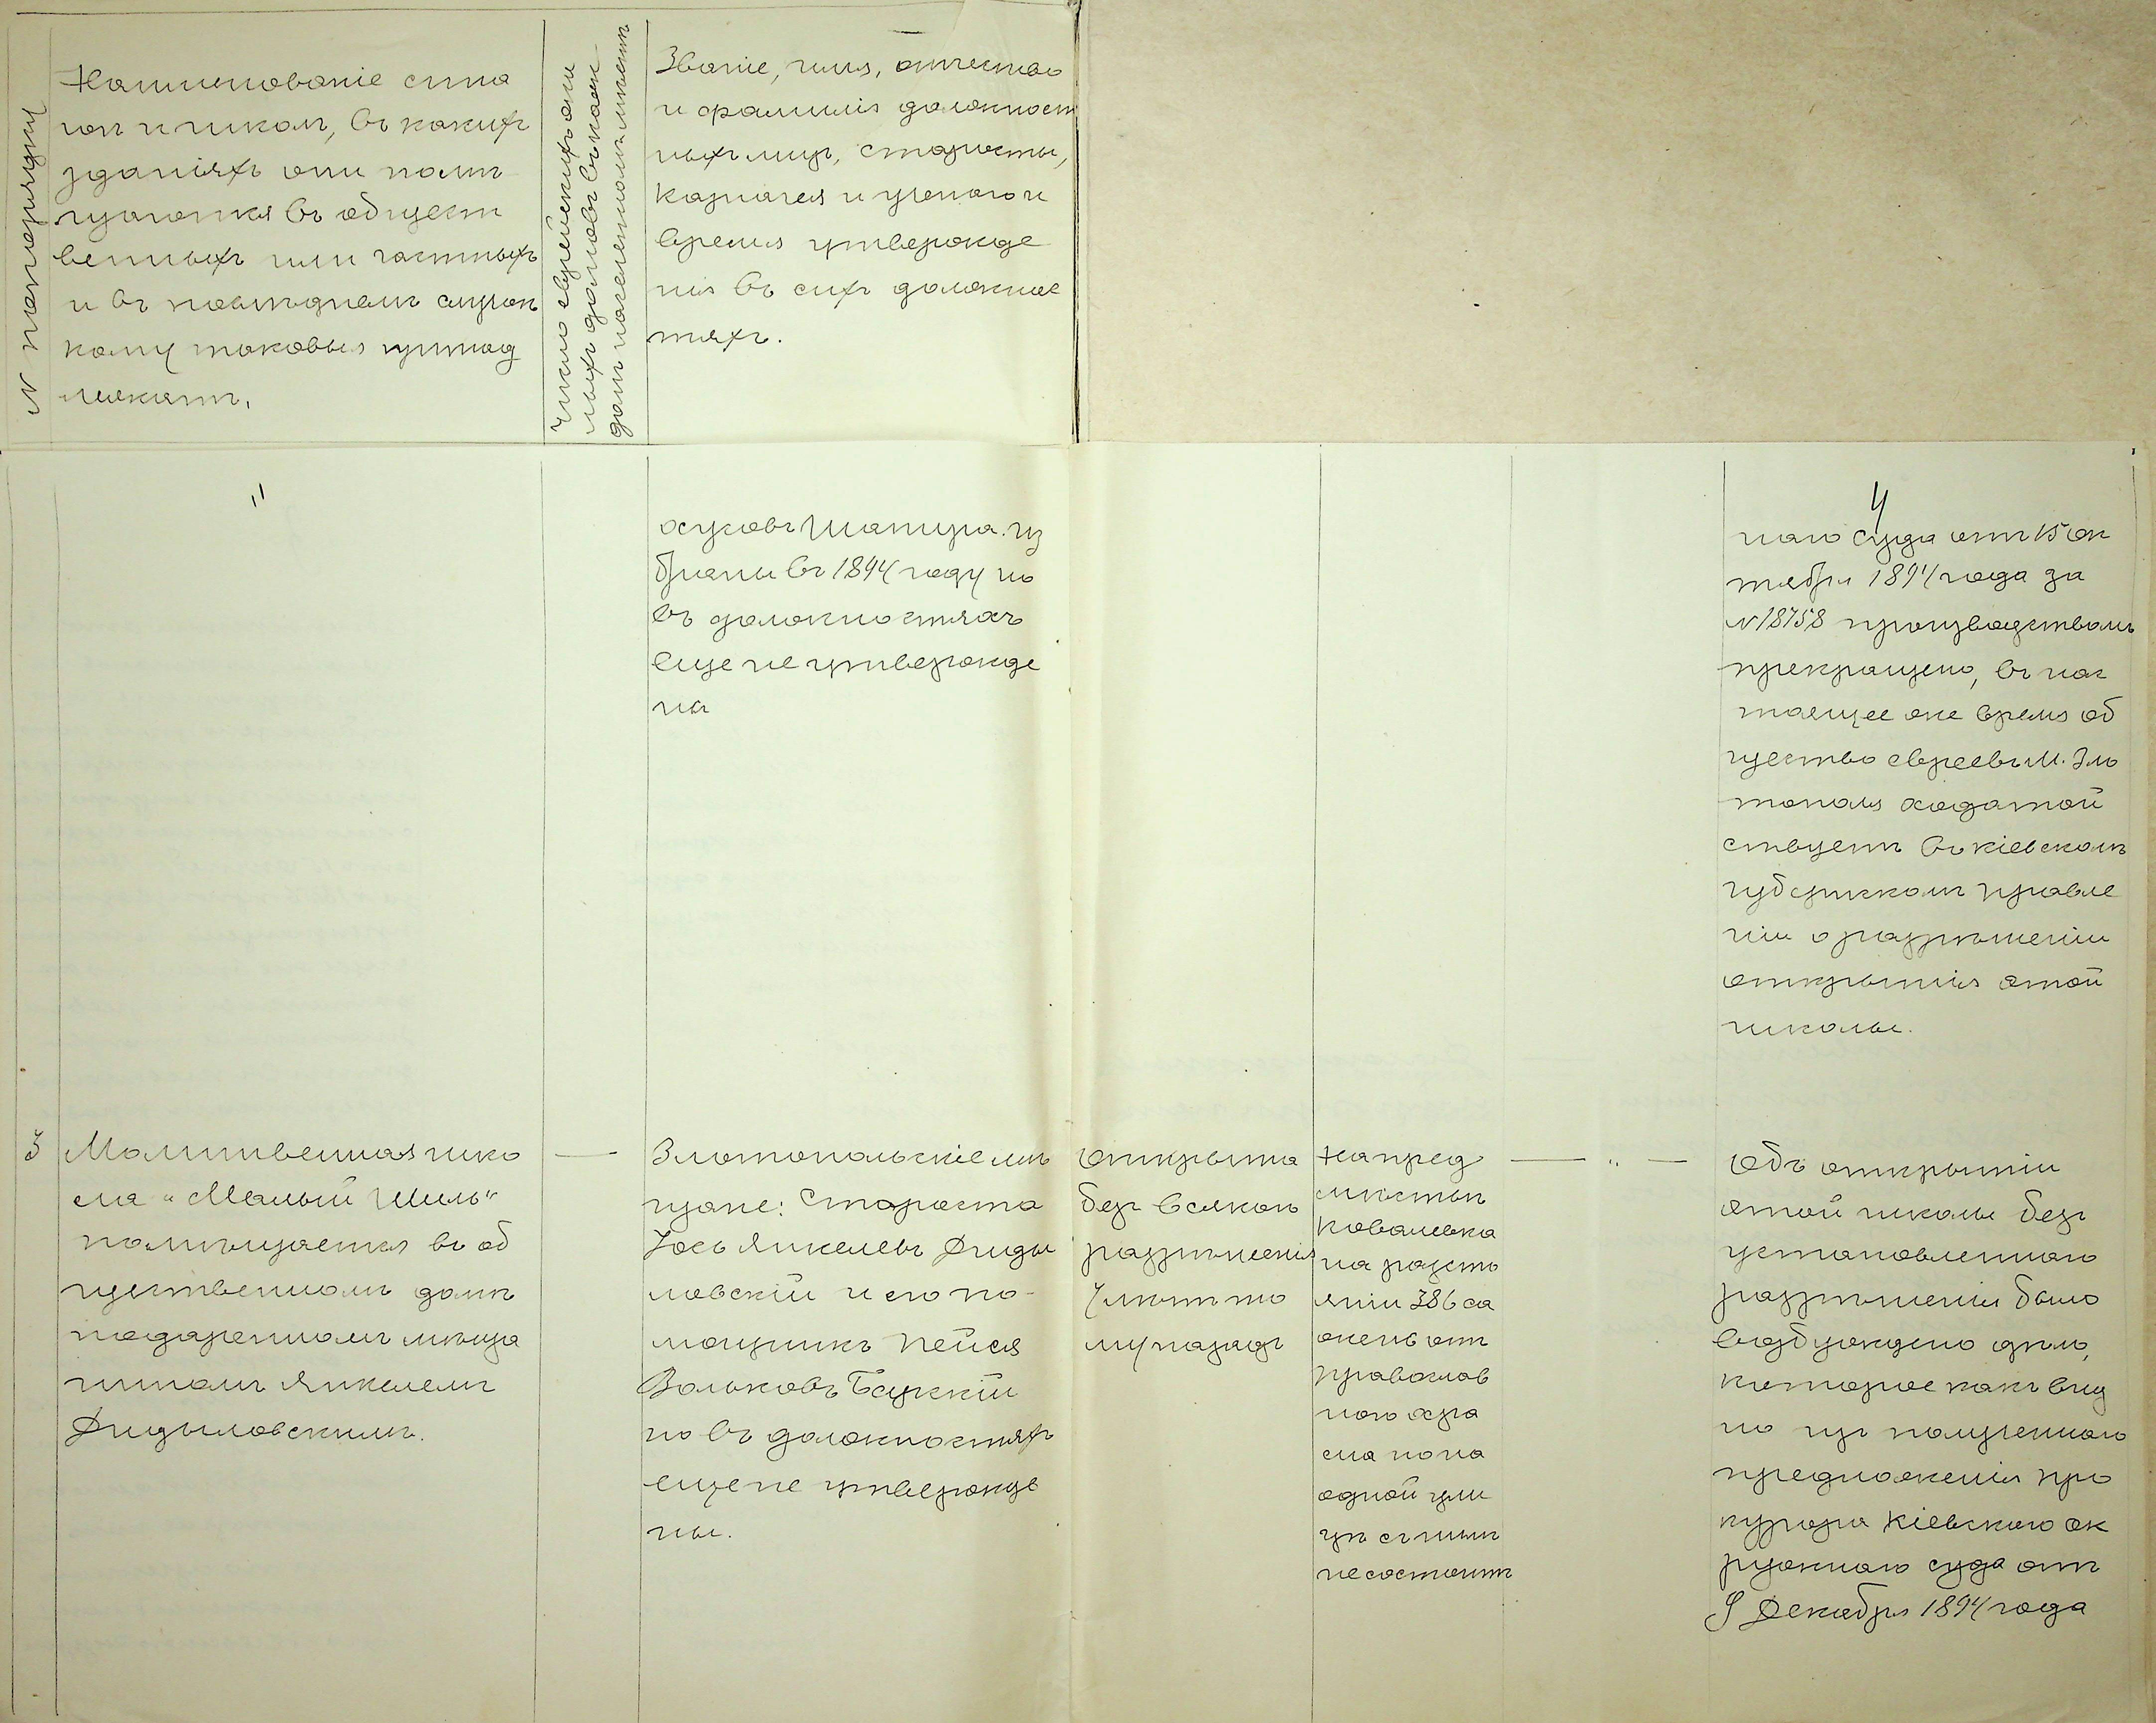 N по порядку
Наименованіе сина
гог и школ, въ какихъ
зданіяхъ они помѣ
щаются въ общест
венныхъ или частныхъ
и въ последнемъ случаѣ
кому таковыя принад
лежатъ.
Число еврейскихъ жи
лыхъ домовъ въ каж
домъ населенномъ мѣстѣ
Званіе, имя, отчество
и фамилія должност
ныхъ лицъ, старосты,
казначея и ученаго и
время утвержде
нія въ сихъ должнос
тяхъ.
"
хуновъ Шапира. из
браны въ 1894 году но
въ должностяхъ
еще не утвержде
ны
4
наго Суда отъ 15 Ок
тября 1894 года за
N 18758 производствомъ
прекращено, въ нас
тоящее же время об
щество евреевъ м. Зло
тополя ходатай
ствуетъ въ Кіевскомъ
губернскомъ правле
ніи о разрѣшеніи
открытія этой
школы.
3
Молитвенная шко
ла "Малый Шиль"
помѣщается въ об
щественномъ домѣ
подаренномъ мѣща
ниномъ Янкелемъ
Дидыловскимъ.
—
Злотопольскіе мѣ
щане: Староста
Іось Янкелевъ Диды
ловскій и его по-
мощникъ Пейся
Вольковъ Бсцкій
но въ должностяхъ
еще не утвержде
ны.
Открыта
безъ всякаго
разрѣшенія
7 лѣтъ то
му назадъ
На пред
мѣстьѣ
Ковалевка
на разсто
яніи 386 са
жень отъ
православ
наго хра
ма но на
одной ули
цѣ съ нимъ
не состоитъ
— " —
Объ открытіи
этой школы безъ
установленнаго
разрѣшенія было
возбуждено дѣло,
которое какъ вид
но изъ полученнаго
предложенія про
курора Кіевского ок
ружнаго суда отъ
9 Декабря 1894 года